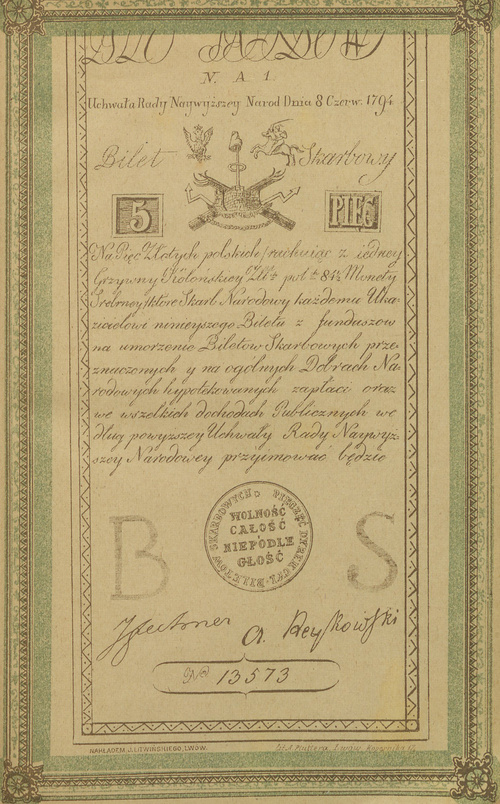 N. A. 1.
Uchwała Rady Naywyższey Narod Dnia 8 Czerw. 1794
Bilet Skarbowy
5 PIĘĆ
Na Pięć Złotych polskich /rachuiąc z iedney
Grzywny Kolonskiey Złł. pol. 84½ Monety
Srebrney/ ktore Skarb Narodowy każdemu Uka
zicielowi ninieyszego Biletu z funduszow
na umorzenie Biletow Skarbowych prze
znaczonych y na ogólnych Dobrach Na
rodowych hypotekowanych zapłaci oraz
we wszelkich dochodach Publicznych we
dług powyższey Uchwały Rady Naywyż
szey Narodowey przyimować będzie
PIECZĘĆ DYREKCYI BILETOW SKARBOWYCH
WOLNOŚĆ
CAŁOŚĆ
I
NIEPODLE
GŁOŚĆ
B S
No 13573
NAKŁADEM J. LITWIŃSKIEGO, LWÓW.